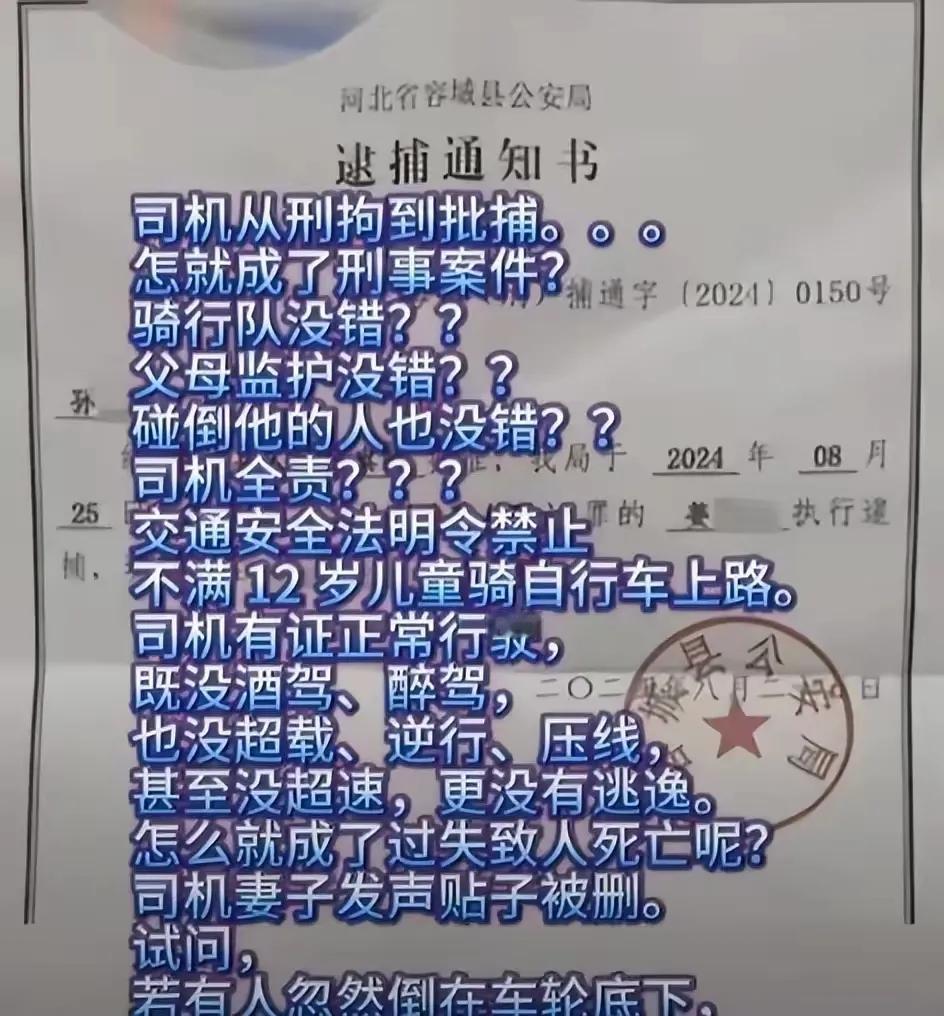 河北省容城县公安局
逮捕通知书
司机从刑拘到批捕。。。
怎就成了刑事案件？
捕通字（2024）0150号
骑行队没错？？
父母监护没错？？
孙
碰倒他的人也没错？？
我局于 2024 年 08 月
司机全责？？？
25 罪的 姜 执行逮
交通安全法明令禁止
捕，
不满 12 岁儿童骑自行车上路。
司机有证正常行驶，
县公安局
既没酒驾、醉驾，
二〇二 年八月二 日
也没超载、逆行、压线，
甚至没超速，更没有逃逸。
怎么就成了过失致人死亡呢？
司机妻子发声贴子被删。
试问，
若有人忽然倒在车轮底下，